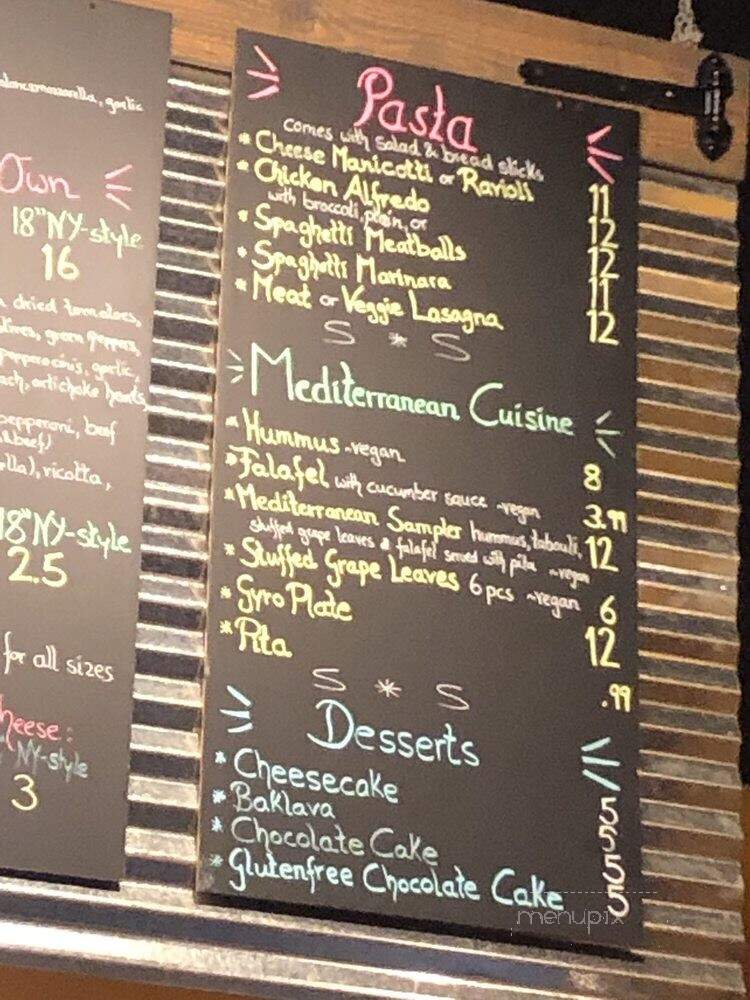 garlic
Own
18" NY-style
16
dried tomatoes,
green peppers,
garlic,
artichoke hearts,
pepperoni, beef
& beef)
ricotta,
18" NY-style
2.5
for all sizes
cheese:
NY-style
3
Pasta
comes with salad & bread sticks
* Cheese Manicotti or Ravioli 11
* Chicken Alfredo 12
with broccoli, plain, or
* Spaghetti Meatballs 12
* Spaghetti Marinara 11
* Meat or Veggie Lasagna 12
S * S
Mediterranean Cuisine
* Hummus ~vegan 8
* Falafel with cucumber sauce ~vegan 3.99
* Mediterranean Sampler hummus, tabouli, 12
stuffed grape leaves & falafel served with pita ~vegan
* Stuffed Grape Leaves 6 pcs ~vegan 6
* Gyro Plate 12
* Pita .99
S * S
Desserts
* Cheesecake 5
* Baklava 5
* Chocolate Cake 5
* Glutenfree Chocolate Cake 5
menupix